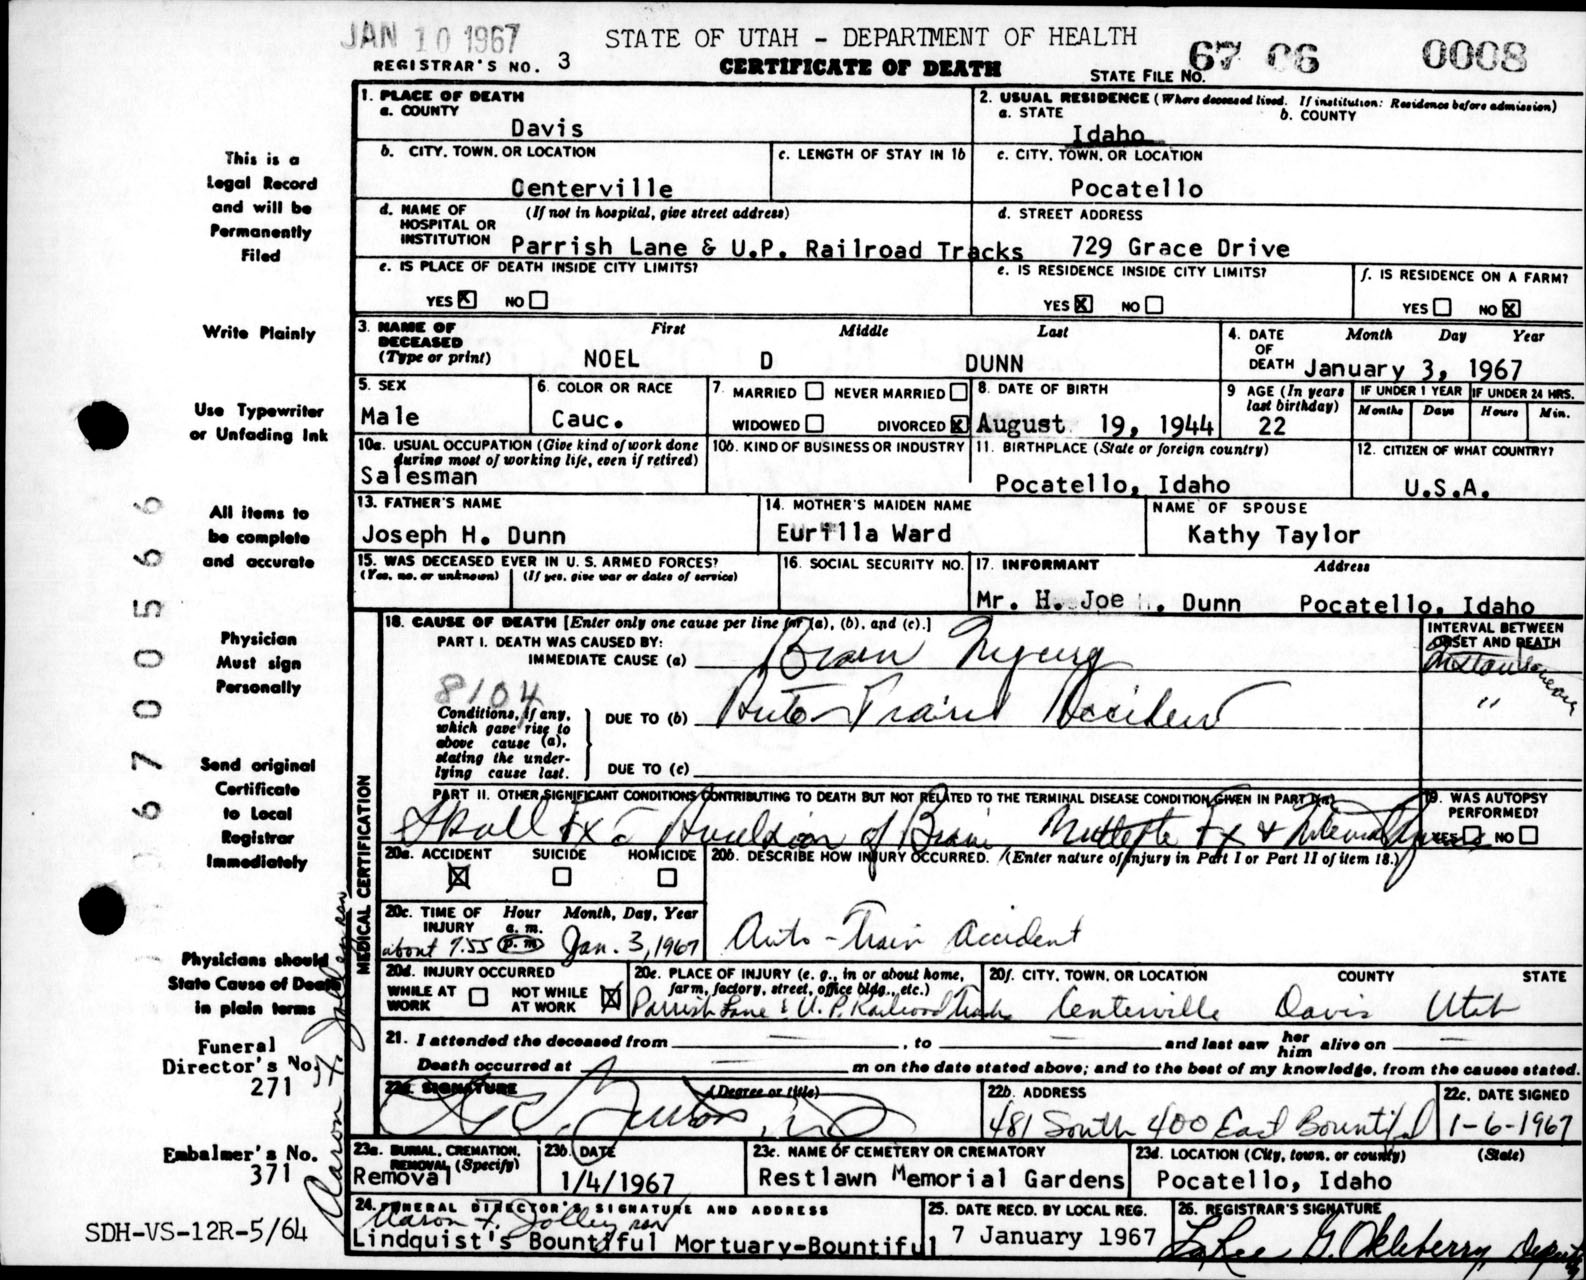 JAN 10 1967
STATE OF UTAH - DEPARTMENT OF HEALTH
REGISTRAR'S NO. 3
CERTIFICATE OF DEATH
STATE FILE NO. 67 06 0008
1. PLACE OF DEATH
a. COUNTY
Davis
2. USUAL RESIDENCE (Where deceased lived. If institution: Residence before admission)
a. STATE
b. COUNTY
Idaho
b. CITY, TOWN, OR LOCATION
Centerville
c. LENGTH OF STAY IN 1b
c. CITY, TOWN, OR LOCATION
Pocatello
d. NAME OF HOSPITAL OR INSTITUTION
(If not in hospital, give street address)
Parrish Lane & U.P. Railroad Tracks
d. STREET ADDRESS
729 Grace Drive
e. IS PLACE OF DEATH INSIDE CITY LIMITS?
YES X NO
e. IS RESIDENCE INSIDE CITY LIMITS?
YES X NO
f. IS RESIDENCE ON A FARM?
YES NO X
3. NAME OF DECEASED
(Type or print)
First Middle Last
NOEL D DUNN
4. DATE OF DEATH
Month Day Year
January 3, 1967
5. SEX
Male
6. COLOR OR RACE
Cauc.
7. MARRIED NEVER MARRIED
WIDOWED DIVORCED X
8. DATE OF BIRTH
August 19, 1944
9 AGE (In years last birthday)
22
IF UNDER 1 YEAR
Months Days
IF UNDER 24 HRS.
Hours Min.
10a. USUAL OCCUPATION (Give kind of work done during most of working life, even if retired)
Salesman
10b. KIND OF BUSINESS OR INDUSTRY
11. BIRTHPLACE (State or foreign country)
Pocatello, Idaho
12. CITIZEN OF WHAT COUNTRY?
U.S.A.
13. FATHER'S NAME
Joseph H. Dunn
14. MOTHER'S MAIDEN NAME
Eurilla Ward
NAME OF SPOUSE
Kathy Taylor
15. WAS DECEASED EVER IN U.S. ARMED FORCES?
(Yes, no, or unknown) (If yes, give war or dates of service)
16. SOCIAL SECURITY NO.
17. INFORMANT Address
Mr. H. Joe Dunn Pocatello, Idaho
18. CAUSE OF DEATH [Enter only one cause per line for (a), (b), and (c).]
PART I. DEATH WAS CAUSED BY:
IMMEDIATE CAUSE (a) Brain Injury
INTERVAL BETWEEN ONSET AND DEATH
Instantaneous
8104
Conditions, if any, which gave rise to above cause (a), stating the underlying cause last.
DUE TO (b) Auto-Train Accident
"
DUE TO (c)
PART II. OTHER SIGNIFICANT CONDITIONS CONTRIBUTING TO DEATH BUT NOT RELATED TO THE TERMINAL DISEASE CONDITION GIVEN IN PART I(a)
Skull Fx c̄ Avulsion of Brain, Multiple Fx + Internal Injuries
19. WAS AUTOPSY PERFORMED?
YES NO
20a. ACCIDENT SUICIDE HOMICIDE
X
20b. DESCRIBE HOW INJURY OCCURRED. (Enter nature of injury in Part I or Part II of item 18.)
Auto-Train accident
20c. TIME OF INJURY
Hour a. m. p. m.
Month, Day, Year
about 7:55 Jan. 3, 1967
20d. INJURY OCCURRED
WHILE AT WORK
NOT WHILE AT WORK X
20e. PLACE OF INJURY (e. g., in or about home, farm, factory, street, office bldg., etc.)
Parrish Lane & U.P. Railroad Tracks
20f. CITY, TOWN, OR LOCATION COUNTY STATE
Centerville Davis Utah
21. I attended the deceased from — , to — and last saw her him alive on —
Death occurred at — m on the date stated above; and to the best of my knowledge, from the causes stated.
22a SIGNATURE (Degree or title)
22b. ADDRESS
481 South 400 East Bountiful
22c. DATE SIGNED
1-6-1967
23a. BURIAL, CREMATION, REMOVAL (Specify)
Removal
23b. DATE
1/4/1967
23c. NAME OF CEMETERY OR CREMATORY
Restlawn Memorial Gardens
23d. LOCATION (City, town, or county) (State)
Pocatello, Idaho
24. FUNERAL DIRECTOR'S SIGNATURE AND ADDRESS
Aaron F. Jolley
Lindquist's Bountiful Mortuary-Bountiful
25. DATE RECD. BY LOCAL REG.
7 January 1967
26. REGISTRAR'S SIGNATURE
LaRee G. Okleberry, Deputy
This is a
Legal Record
and will be
Permanently
Filed
Write Plainly
Use Typewriter
or Unfading Ink
All items to
be complete
and accurate
Physician
Must sign
Personally
Send original
Certificate
to Local
Registrar
Immediately
Physicians should
State Cause of Death
in plain terms
Funeral
Director's No.
271
Embalmer's No.
371
SDH-VS-12R-5/64
6700566
MEDICAL CERTIFICATION
Aaron F. Jolley